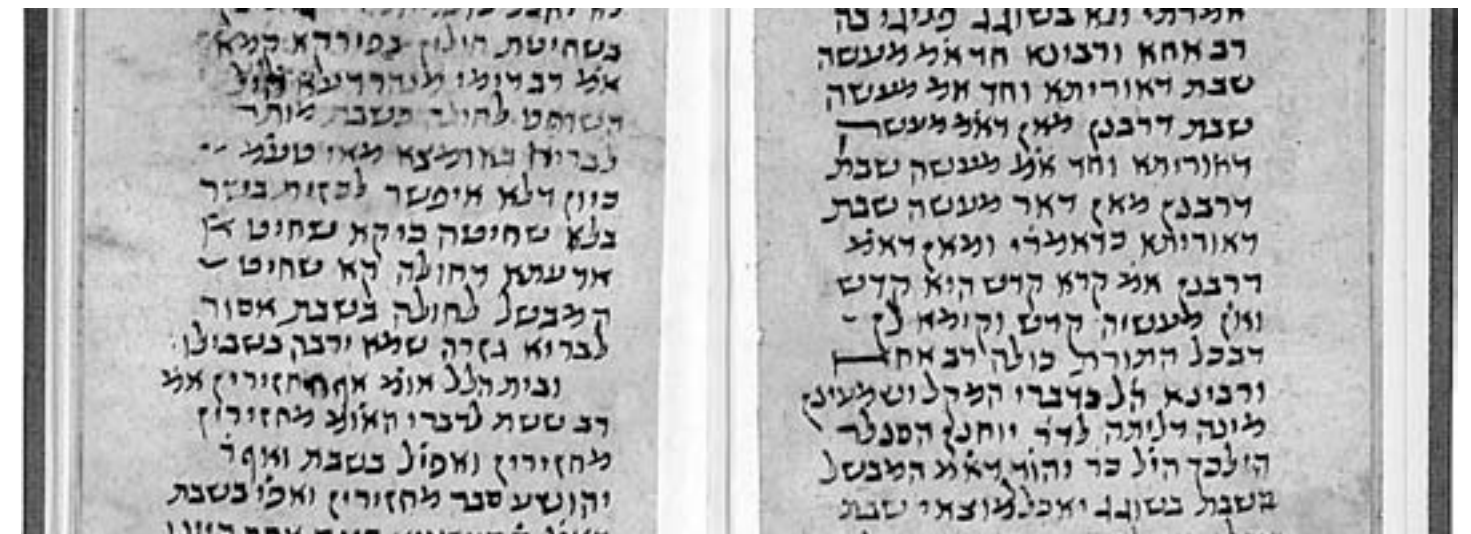 רב אחא ורבינא חד אמ׳ מעשה
שבת דאוריתא וחד אמ׳ מעשה
שבת דרבנן מאן דאמ׳ מעשה
דאוריתא וחד אמ׳ מעשה שבת
דרבנן מאן דאר מעשה שבת
דאוריתא כדאמרי׳ ומאן דאמ׳
דרבנן אמ׳ קרא קדש היא קדש
ואין מעשיה קדש וקימא לן
דבכל התורה כולה רב אחא
ורבינא הל׳ כדברי המקל ושמעינן
מינה דליתה לדר׳ יוחנן הסנדלר
הילכך היל׳ כר׳ יהוד׳ דאמ׳ המבשל
בשבת בשוגג יאכל למוצאי שבת
בשחיטת חולין בפירקא קמא
אמ׳ רב דימי מנהרדעא היל׳
השוחט לחולה בשבת מותר
לבריא באומצא מאי טעמ׳
כיון דלא איפשר לכזית בשר
בלא שחיטה כי קא שחיט
אדעתא דחולה קא שחיט
המבשל לחולה בשבת אסור
לבריא גזרה שמא ירבה בשבילו
ובית הלל אומ׳ אף מחזירין אמ׳
רב ששת לדברי האומ׳ מחזירין
מחזירין ואפיל׳ בשבת ואף ר׳
יהושע סבר מחזירין ואפי׳ בשבת